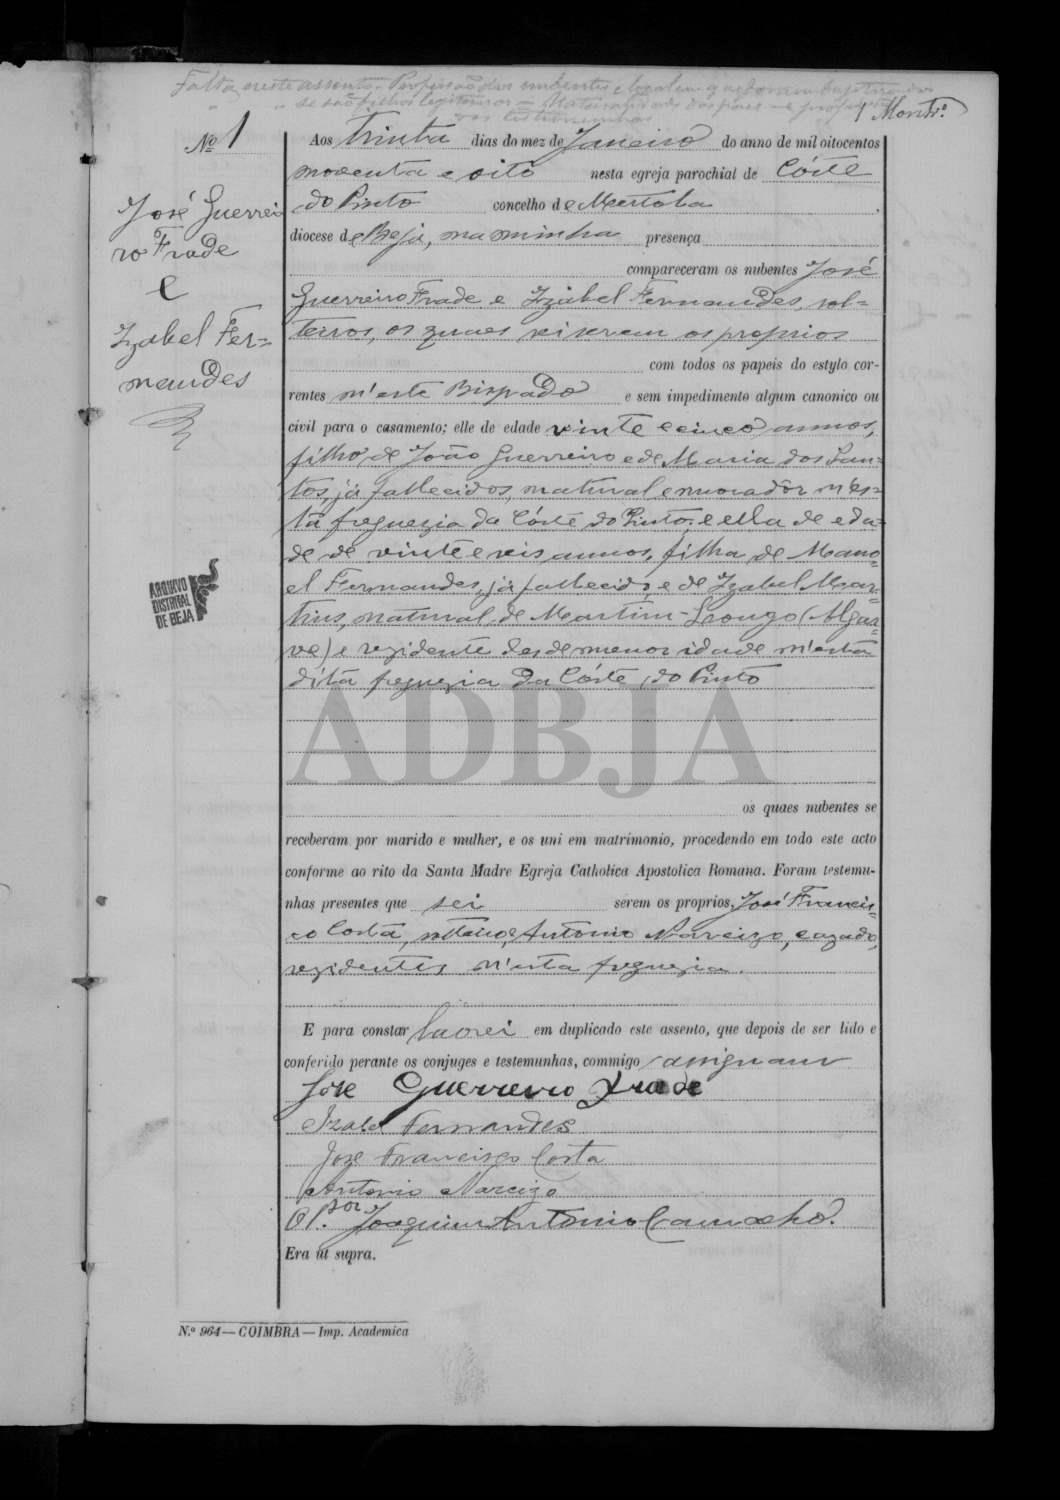 Falta neste assento Profissão dos nubentes e local em que foram baptizados
" " se são filhos legitimos — Naturalidade dos paes — e profissão
das testemunhas
1 Montrº
Nº 1
José Guerrei
ro Frade
E
Izabel Fer=
nandes
Aos trinta dias do mez de Janeiro do anno de mil oitocentos
noventa e oito nesta egreja parochial de Côrte
do Pinto concelho de Mertola
diocese de Beja, na minha presença
compareceram os nubentes José
Guerreiro Frade e Izabel Fernandes, sol=
teiros, os quaes sei serem os proprios
com todos os papeis do estylo cor-
rentes n'este Bispado e sem impedimento algum canonico ou
civil para o casamento; elle de edade vinte e cinco annos,
filho, de João Guerreiro e de Maria dos San=
tos, já fallecidos, natural e morador n'es=
ta freguezia da Côrte do Pinto; e ella de eda=
de de vinte e seis annos, filha de Mano=
el Fernandes, já fallecido, e de Izabel Mar=
tins, natural, de Martim-Longo (Algar=
ve) e rezidente desde menor idade n'esta
dita freguezia da Côrte do Pinto
ADBJA
ARQUIVO
DISTRITAL
DE BEJA
os quaes nubentes se
receberam por marido e mulher, e os uni em matrimonio, procedendo em todo este acto
conforme ao rito da Santa Madre Egreja Catholica Apostolica Romana. Foram testemu-
nhas presentes que sei serem os proprios, José Francis=
co Costa, solteiro, e Antonio Narcizo, cazado,
rezidentes n'esta freguezia.
E para constar lavrei em duplicado este assento, que depois de ser lido e
conferido perante os conjuges e testemunhas, commigo assignam
José Guerreiro Frade
Izabel Fernandes
Jose Francisco Costa
Antonio Narcizo
O P.or Joaquim Antonio Camacho.
Era ut supra.
N.º 964 — COIMBRA — Imp. Academica